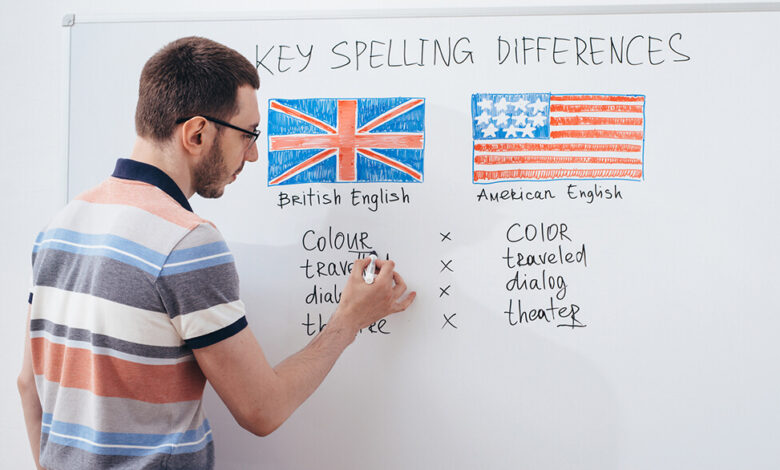 KEY SPELLING DIFFERENCES
British English
American English
Colour x COlOR
x traveled
x dialog
x theateR